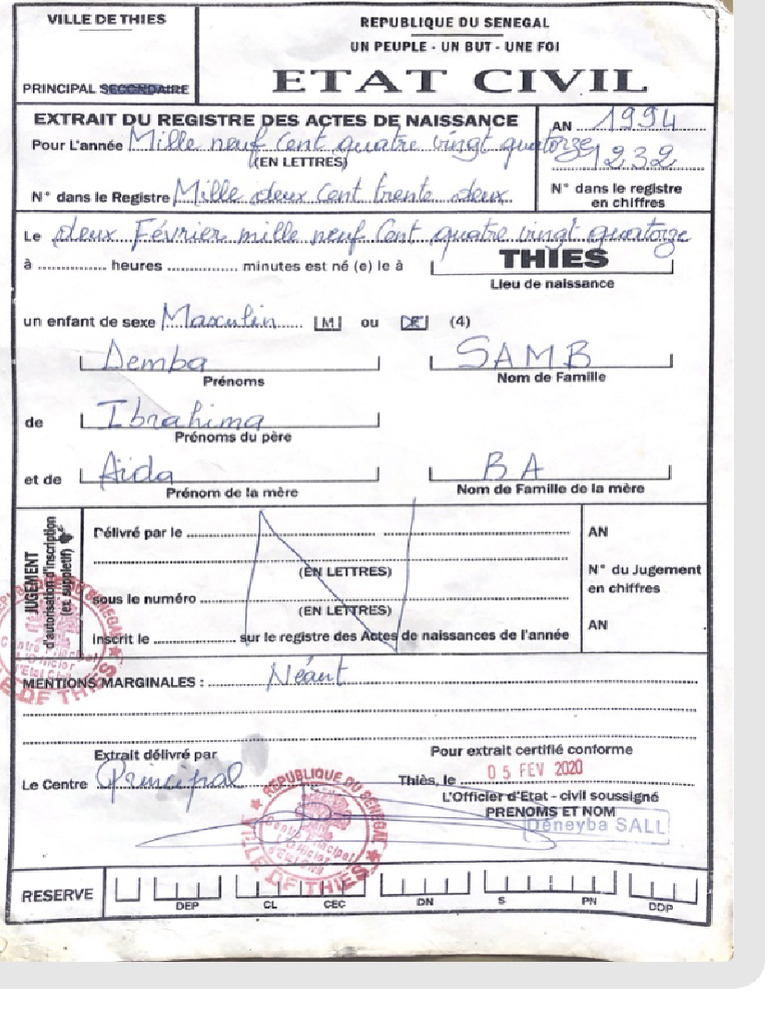 VILLE DE THIES
PRINCIPAL SECONDAIRE
REPUBLIQUE DU SENEGAL
UN PEUPLE - UN BUT - UNE FOI
ETAT CIVIL
EXTRAIT DU REGISTRE DES ACTES DE NAISSANCE
Pour L'année Mille neuf Cent quatre vingt quatorze
(EN LETTRES)
N° dans le Registre Mille deux Cent trente deux
AN 1994
1232
N° dans le registre
en chiffres
Le deux Février mille neuf Cent quatre vingt quatorze
à ............... heures ............... minutes est né (e) le à THIES
Lieu de naissance
un enfant de sexe Masculin M ou (4)
Demba SAMB
Prénoms Nom de Famille
de Ibrahima
Prénoms du père
et de Aïda BA
Prénom de la mère Nom de Famille de la mère
JUGEMENT
d'autorisation d'inscription
(ex. supplétif)
Délivré par le
(EN LETTRES)
sous le numéro
(EN LETTRES)
inscrit le ............... sur le registre des Actes de naissances de l'année
AN
N° du Jugement
en chiffres
AN
MENTIONS MARGINALES : Néant
Extrait délivré par
Le Centre Principal
Pour extrait certifié conforme
Thiès, le 05 FEV 2020
L'Officier d'Etat - civil soussigné
PRENOMS ET NOM
Déneyba SALL
REPUBLIQUE DU SENEGAL
Centre Principal
VILLE DE THIES
RESERVE
DEP CL CEC DN S PN DDP